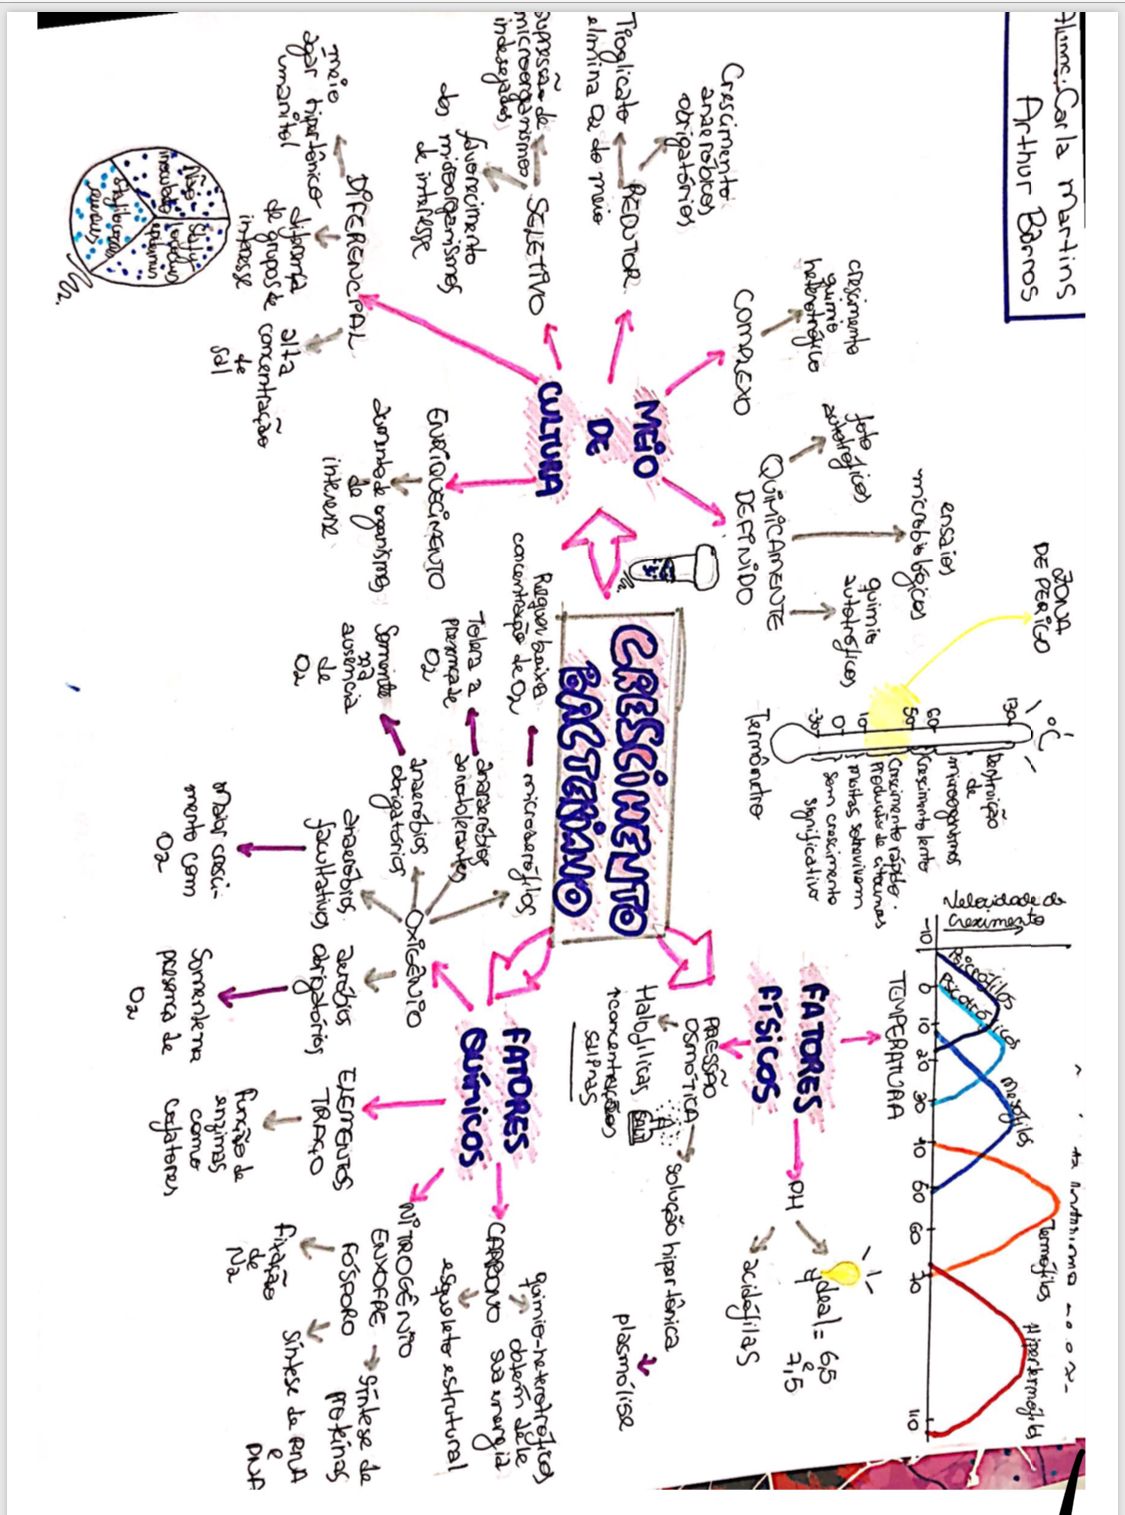 Carla Martins
Arthur Barros
ZONA
DE PERIGO
°C
130
60
50
10
0
-30
Destruição
de
microorganismos
Crescimento lento
Crescimento rápido.
Produção de
muitas sobrevivem
Sem crescimento
significativo
Termômetro
Velocidade de
Crescimento
Psicrófilos
Psicotróficos
Mesófilos
Termófilos
Hipertermófilos
-10 0 10 20 30 40 50 60 70 110
TEMPERATURA
FATORES
FÍSICOS
PH
Ideal = 6,5
e
7,5
acidófilas
PRESSÃO
OSMÓTICA
SALT
Halofílicas
↑concentrações
salinas
solução hipertônica
plasmólise
ensaios
microbiológicos
foto
autotróficos
quimio
autotróficos
QUIMICAMENTE
DEFINIDO
crescimento
quimio
heterotrófico
COMPLEXO
Crescimento
anaeróbicos
obrigatórios
REDUTOR
Tioglicato
elimina O2 do meio
MEIO
DE
CULTURA
CRESCIMENTO
BACTERIANO
supressão de
microorganismos
indesejados
SELETIVO
favorecimento
dos microorganismos
de interesse
ENRIQUECIMENTO
aumento de organismos
de
interesse
DIFERENCIAL
meio
ágar hipertônico
manitol
diferença
de grupos de
interesse
alta
concentração
de
sal
Não
inoculado
FATORES
QUÍMICOS
CARBONO
quimio-heterotróficos
obtém dele
sua energia
esqueleto estrutural
NITROGÊNIO
ENXOFRE
FÓSFORO
Síntese de
proteínas
Síntese de RNA
e
DNA
fixação
de
N2
ELEMENTOS
TRAÇO
função de
enzimas
como
cofatores
OXIGÊNIO
microaerófilos
Requer baixa
concentração de O2
anaeróbios
aerotolerantes
Tolera a
presença de
O2
anaeróbios
obrigatórios
Somente
na
ausência
de
O2
anaeróbios
facultativos
Maior cresci-
mento com
O2
aeróbios
obrigatórios
Somente na
presença de
O2